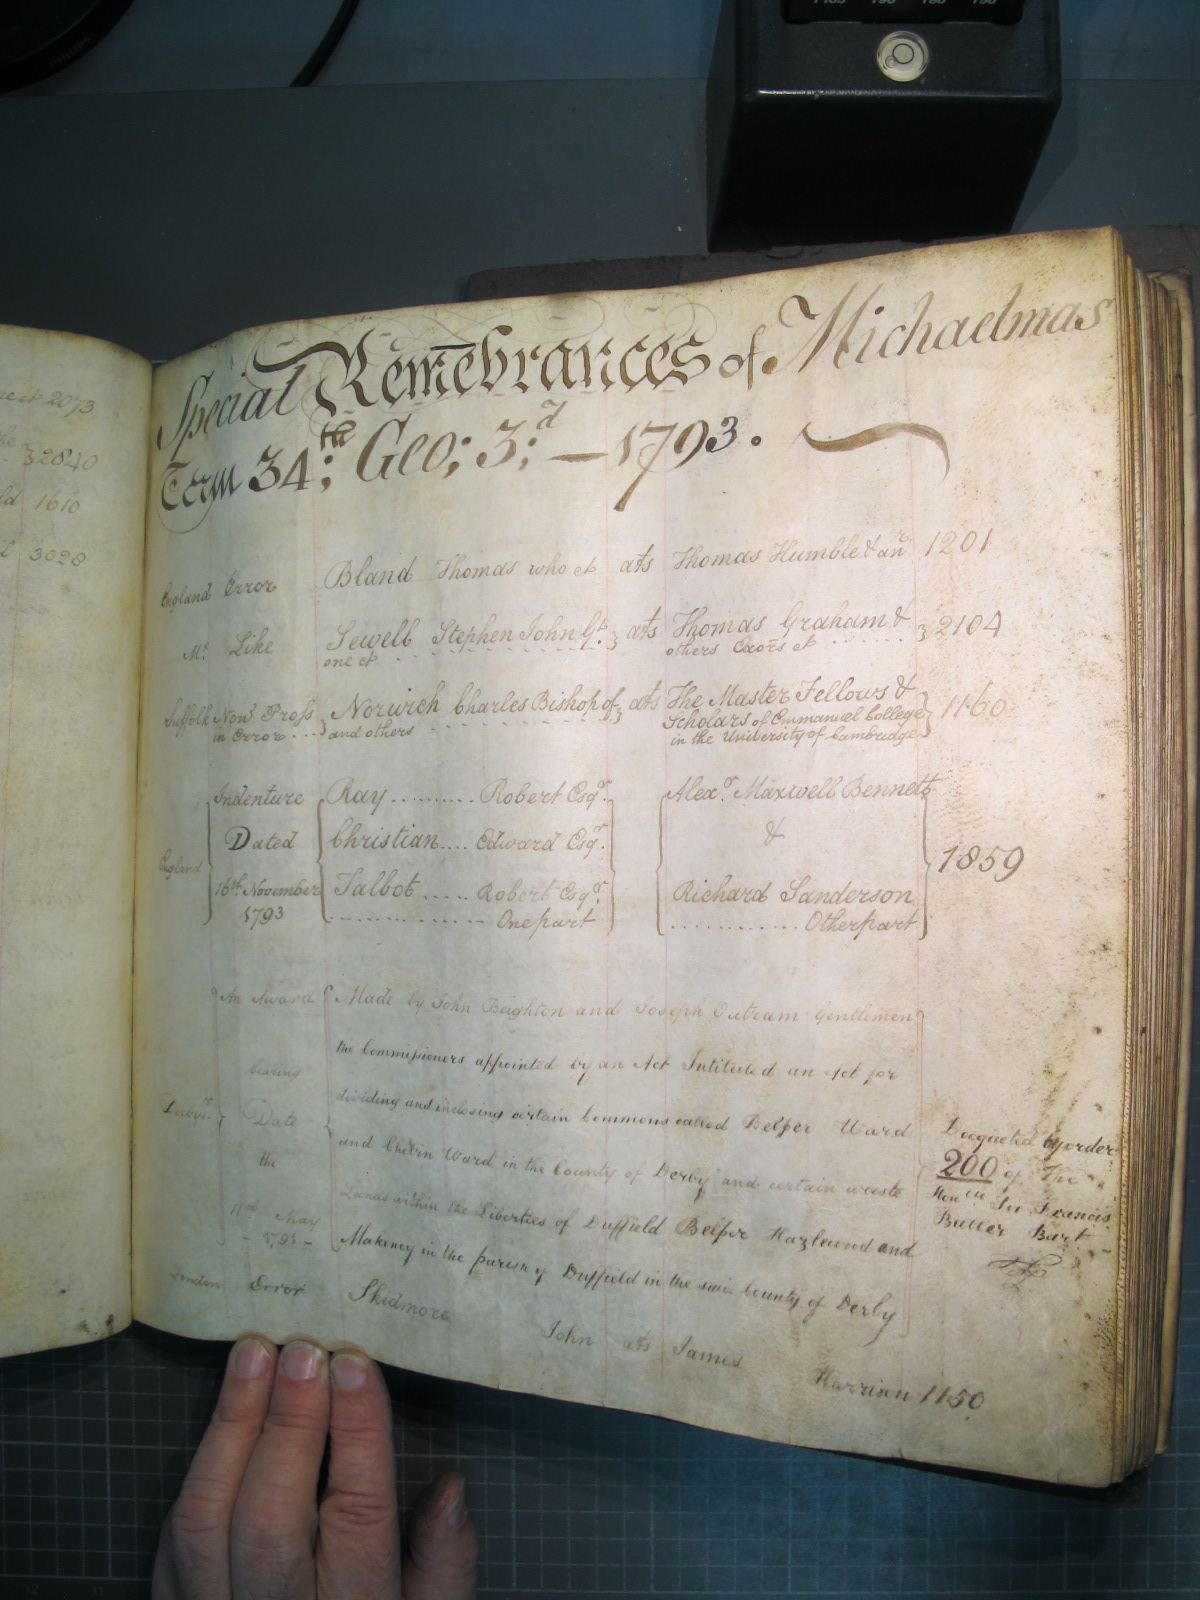 2073
32840
1610
3028
Special Remembrances of Michaelmas
Term 34th; Geo; 3;d — 1793.
England Error Bland Thomas who et ats Thomas Humble & anr 1201
Mx Like Sewell Stephen John Gt. ats Thomas Graham & 2104
one et others Exors et
Suffolk Non Pross Norwich Charles Bishop of ats The Master Fellows & 1160
in Error and others Scholars of Emmanuel College
in the University of Cambridge
Indenture Ray .......... Robert Esqr. Alexr. Maxwell Bennett
Dated Christian .... Edward Esqr. &
England 1859
16th November Talbot ..... Robert Esqr. Richard Sanderson
1793 One part Other part
An Award Made by John Beighton and Joseph Outram Gentlemen
the Commissioners appointed by an Act Intituled an Act for
bearing
dividing and inclosing certain Commons called Belper Ward
Derby Date Doqueted by order
and Chevin Ward in the County of Derby and certain waste 200 of The
the Honble Sir Francis
Lands within the Liberties of Duffield Belper Hazlewood and Buller Bart
May
Makeney in the parish of Duffield in the said County of Derby
London Error Skidmore John ats James Harrison 1150